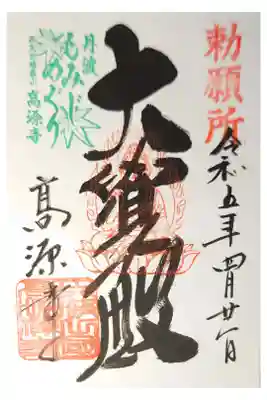 勅願所
令和五年四月廿一日
大寶殿
丹波
もみじ
めぐり
高源寺
髙源寺